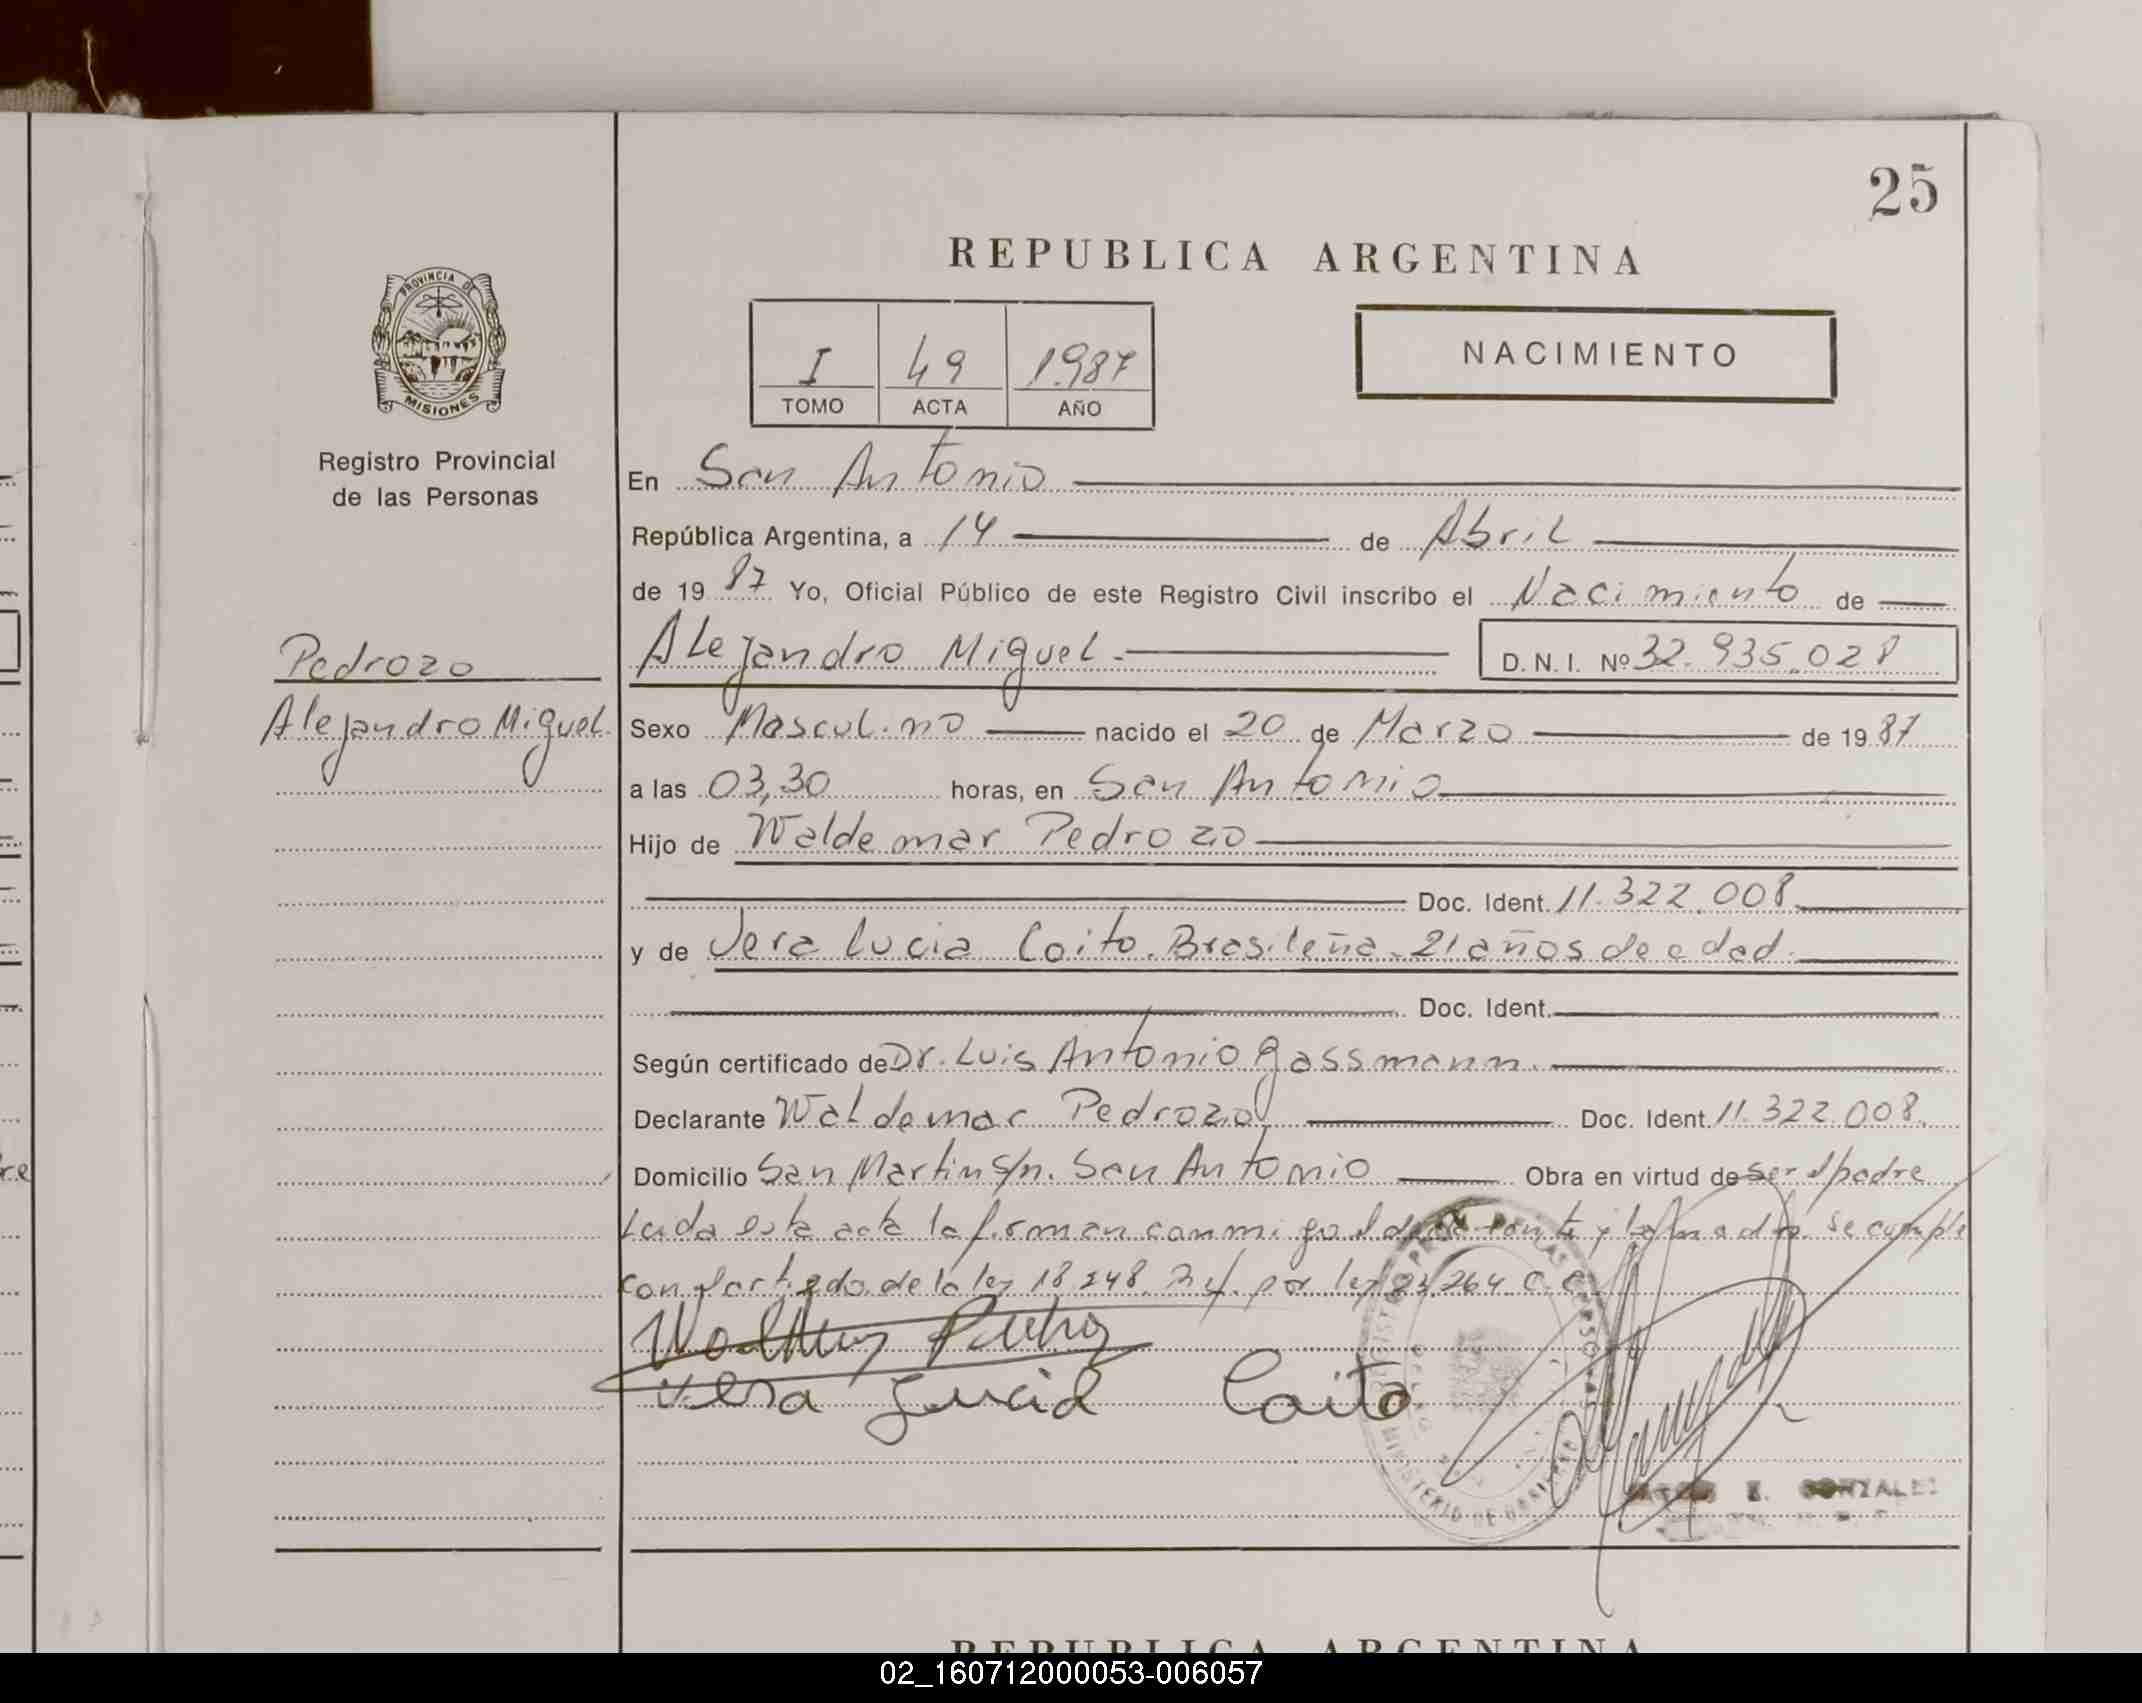 25
REPUBLICA ARGENTINA
PROVINCIA DE
MISIONES
Registro Provincial
de las Personas
I 49 1987
TOMO ACTA AÑO
NACIMIENTO
En San Antonio
República Argentina, a 14 de Abril
de 19 87 Yo, Oficial Público de este Registro Civil inscribo el Nacimiento de
Pedrozo
Alejandro Miguel
Alejandro Miguel.- D. N. I. Nº 32.935.028
Sexo Masculino nacido el 20 de Marzo de 19 87
a las 03,30 horas, en San Antonio
Hijo de Waldemar Pedrozo
Doc. Ident. 11.322.008
y de Vera Lucia Coito. Brasileña. 21 años de edad.
Doc. Ident.
Según certificado de Dr. Luis Antonio Gassmann.
Declarante Waldemar Pedrozo Doc. Ident. 11.322.008.
Domicilio San Martin s/n. San Antonio Obra en virtud de ser el padre
Leida esta acta la firman conmigo el declarante y la madre. Se cumple
con el art. 2do. de la ley 18.248. por ley 23.264
Vera Lucia Coito
MINISTERIO DE GOBIERNO
GONZALEZ
REPUBLICA ARGENTINA
02_160712000053-006057